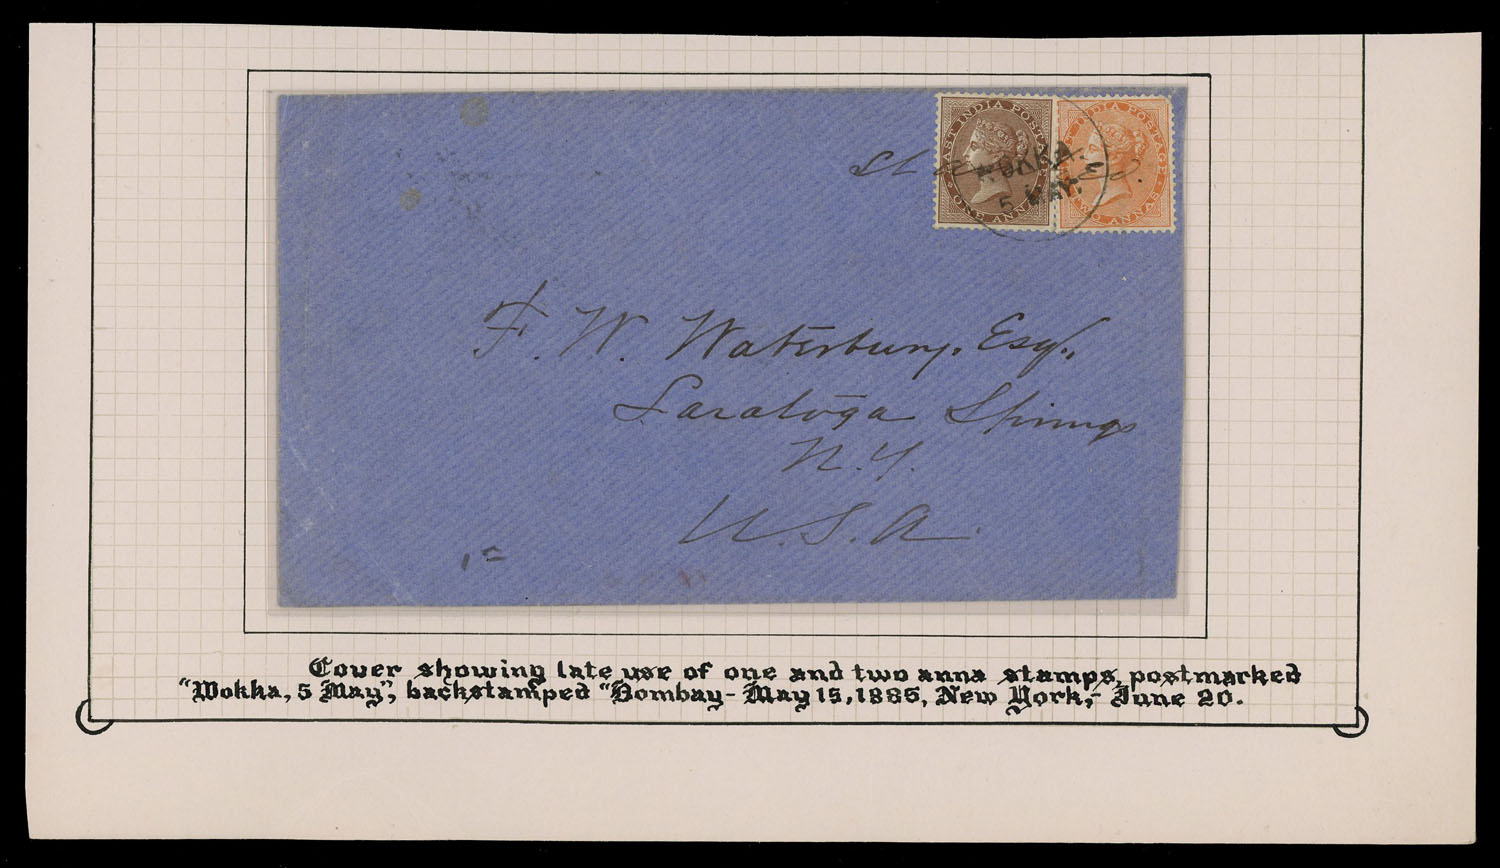 EAST INDIA POSTAGE
ONE ANNA
EAST INDIA POSTAGE
TWO ANNAS
WOKKA.
5 MAY.
F. W. Waterbury, Esq.,
Saratoga Springs
N.Y.
U.S.A.
Cover showing late use of one and two anna stamps, postmarked
"Wokka, 5 May", backstamped "Bombay - May 15, 1885, New York, - June 20.